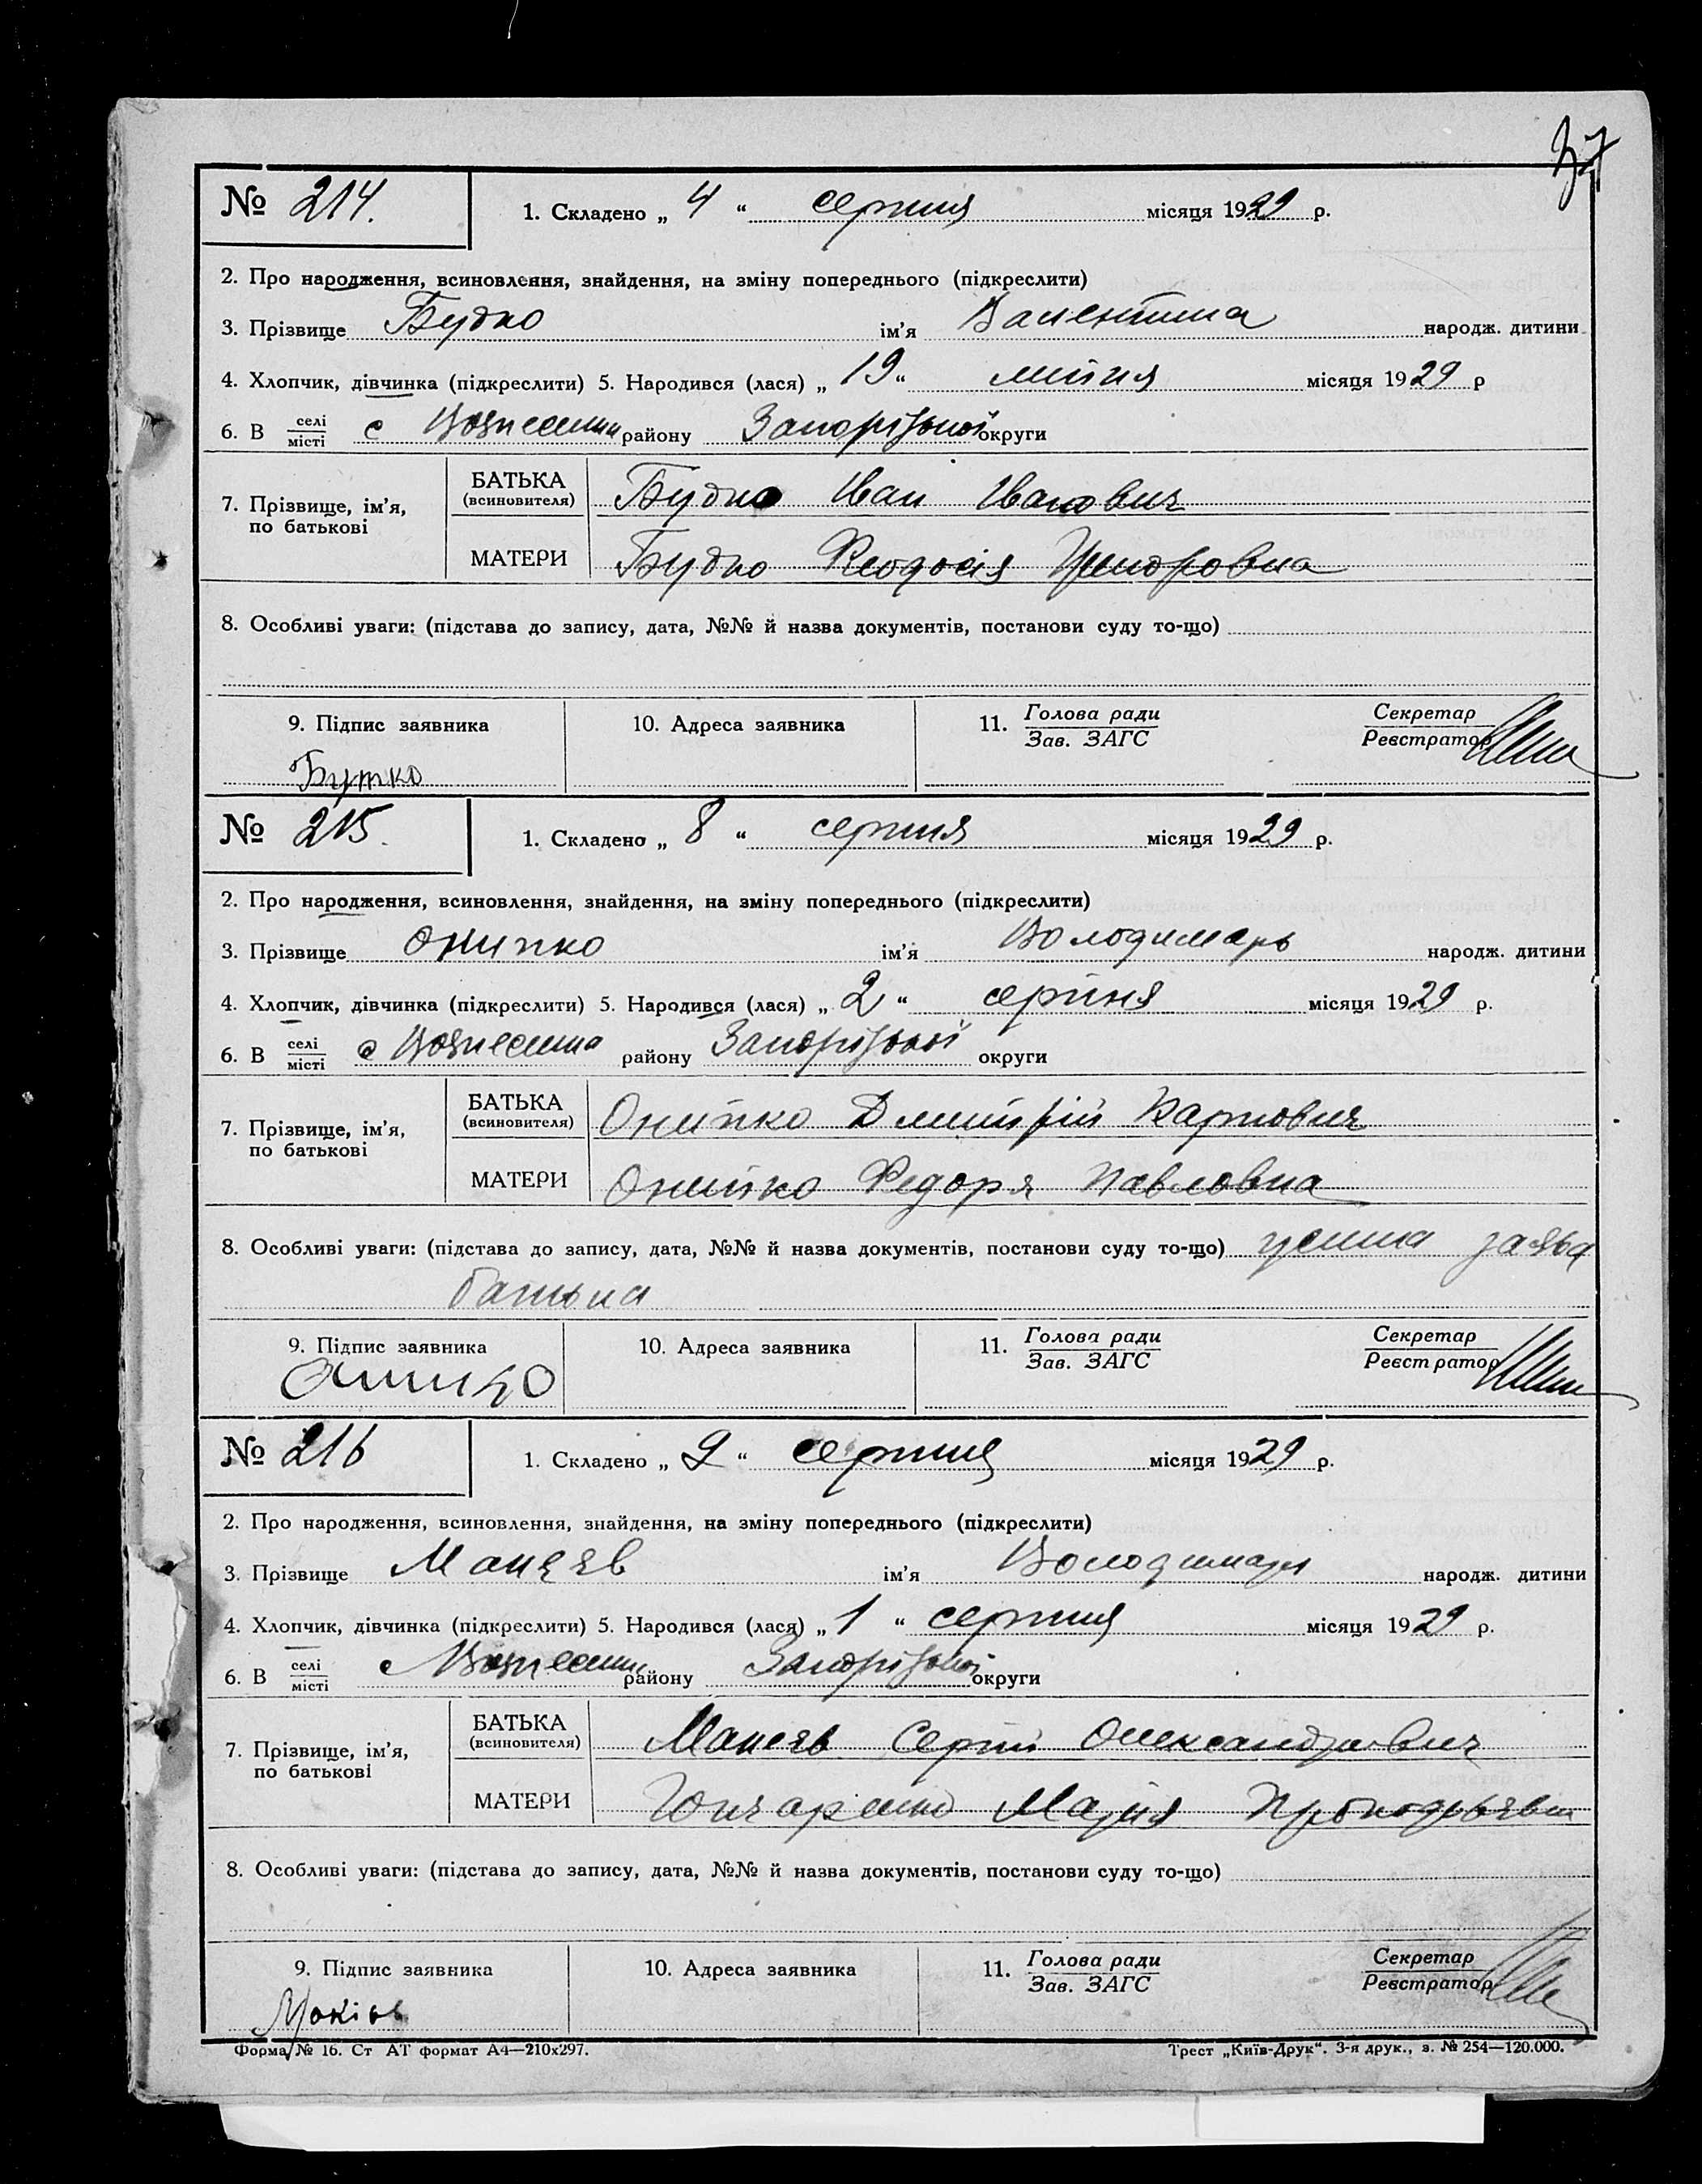 37
№ 214. 1. Складено „ 4 “ серпня місяця 1929 р.
2. Про народження, всиновлення, знайдення, на зміну попереднього (підкреслити)
3. Прізвище Будко ім’я Валентина народж. дитини
4. Хлопчик, дівчинка (підкреслити) 5. Народився (лася) „ 19 “ липня місяця 1929 р
6. В селі/місті с Вознесенка району Запорізької округи
7. Прізвище, ім’я, по батькові
БАТЬКА (всиновителя) Будко Іван Іванович
МАТЕРИ Будко Феодосія
8. Особливі уваги: (підстава до запису, дата, №№ й назва документів, постанови суду то-що)
9. Підпис заявника 10. Адреса заявника 11. Голова ради/Зав. ЗАГС Секретар/Реєстратор
Бутко
№ 215. 1. Складено „ 8 “ серпня місяця 1929 р.
2. Про народження, всиновлення, знайдення, на зміну попереднього (підкреслити)
3. Прізвище Онипко ім’я Володимарь народж. дитини
4. Хлопчик, дівчинка (підкреслити) 5. Народився (лася) „ 2 “ серпня місяця 1929 р.
6. В селі/місті с Вознесенка району Запорізької округи
7. Прізвище, ім’я, по батькові
БАТЬКА (всиновителя) Онипко Дмитрій Карпович
МАТЕРИ Онипко Федоря Павловна
8. Особливі уваги: (підстава до запису, дата, №№ й назва документів, постанови суду то-що) усна заява
батька
9. Підпис заявника 10. Адреса заявника 11. Голова ради/Зав. ЗАГС Секретар/Реєстратор
Онипко
№ 216 1. Складено „ 9 “ серпня місяця 1929 р.
2. Про народження, всиновлення, знайдення, на зміну попереднього (підкреслити)
3. Прізвище ім’я Володимарь народж. дитини
4. Хлопчик, дівчинка (підкреслити) 5. Народився (лася) „ 1 “ серпня місяця 1929 р.
6. В селі/місті с Вознесенка району Запорізької округи
7. Прізвище, ім’я, по батькові
БАТЬКА (всиновителя) Сергій Олександрович
МАТЕРИ Гончаренко Марія
8. Особливі уваги: (підстава до запису, дата, №№ й назва документів, постанови суду то-що)
9. Підпис заявника 10. Адреса заявника 11. Голова ради/Зав. ЗАГС Секретар/Реєстратор
Форма № 16. Ст АТ формат А4—210х297. Трест „Київ-Друк“. 3-я друк., з. № 254—120.000.